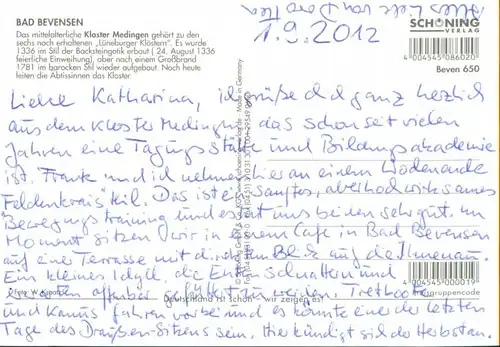 Alles Liebe von Dorothea
1.9.2012
BAD BEVENSEN
Das mittelalterliche Kloster Medingen gehört zu den
sechs noch erhaltenen „Lüneburger Klöstern“. Es wurde
1336 im Stil der Backsteingotik erbaut ( 24. August 1336
feierliche Einweihung), aber nach einem Großbrand
1781 im barocken Stil wieder aufgebaut. Noch heute
leiten die Äbtissinnen das Kloster
SCHÖNING
VERLAG
4 004545 086020
Beven 650
Liebe Katharina, ich grüße dich ganz herzlich
aus dem Kloster Medingen, das schon seit vielen
Jahren eine Tagungsstätte und Bildungsakademie
ist. Frank und ich nehmen hier an einem Wochenende
"Feldenkrais" teil. Das ist ein sanftes, aber hoch wirksames
Bewegungstraining und es tut uns beiden sehr gut. Im
Moment sitzen wir in einem Cafe in Bad Bevensen
auf eine Terrasse mit direktem Blick auf die Ilmenau.
Ein kleines Idyll, die Enten schnattern und
werden offenbar gefüttert, zu werden. Tretboote
und Kanus fahren vorbei und es könnte eine der letzten
Tage des Draußen-Sitzens sein. Hier kündigt sich der Herbst an.
Made in Germany
Deutschland ist schön - wir zeigen es!
4 004545 000019